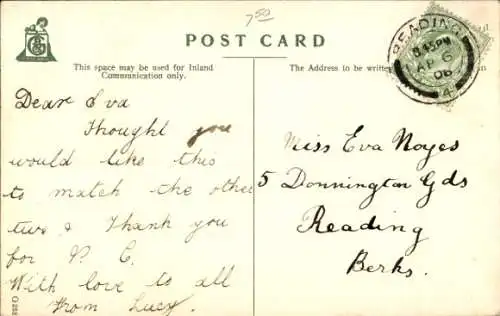 7.50
POST CARD
This space may be used for Inland
Communication only.
The Address to be writte
Dear Eva
Thought you
would like this
to match the other
two & Thank you
for P. C.
With love to all
From Lucy.
Miss Eva Noyes
5 Donnington Gds
Reading
Berks.
READING
8 45 PM
AP 6
06
4